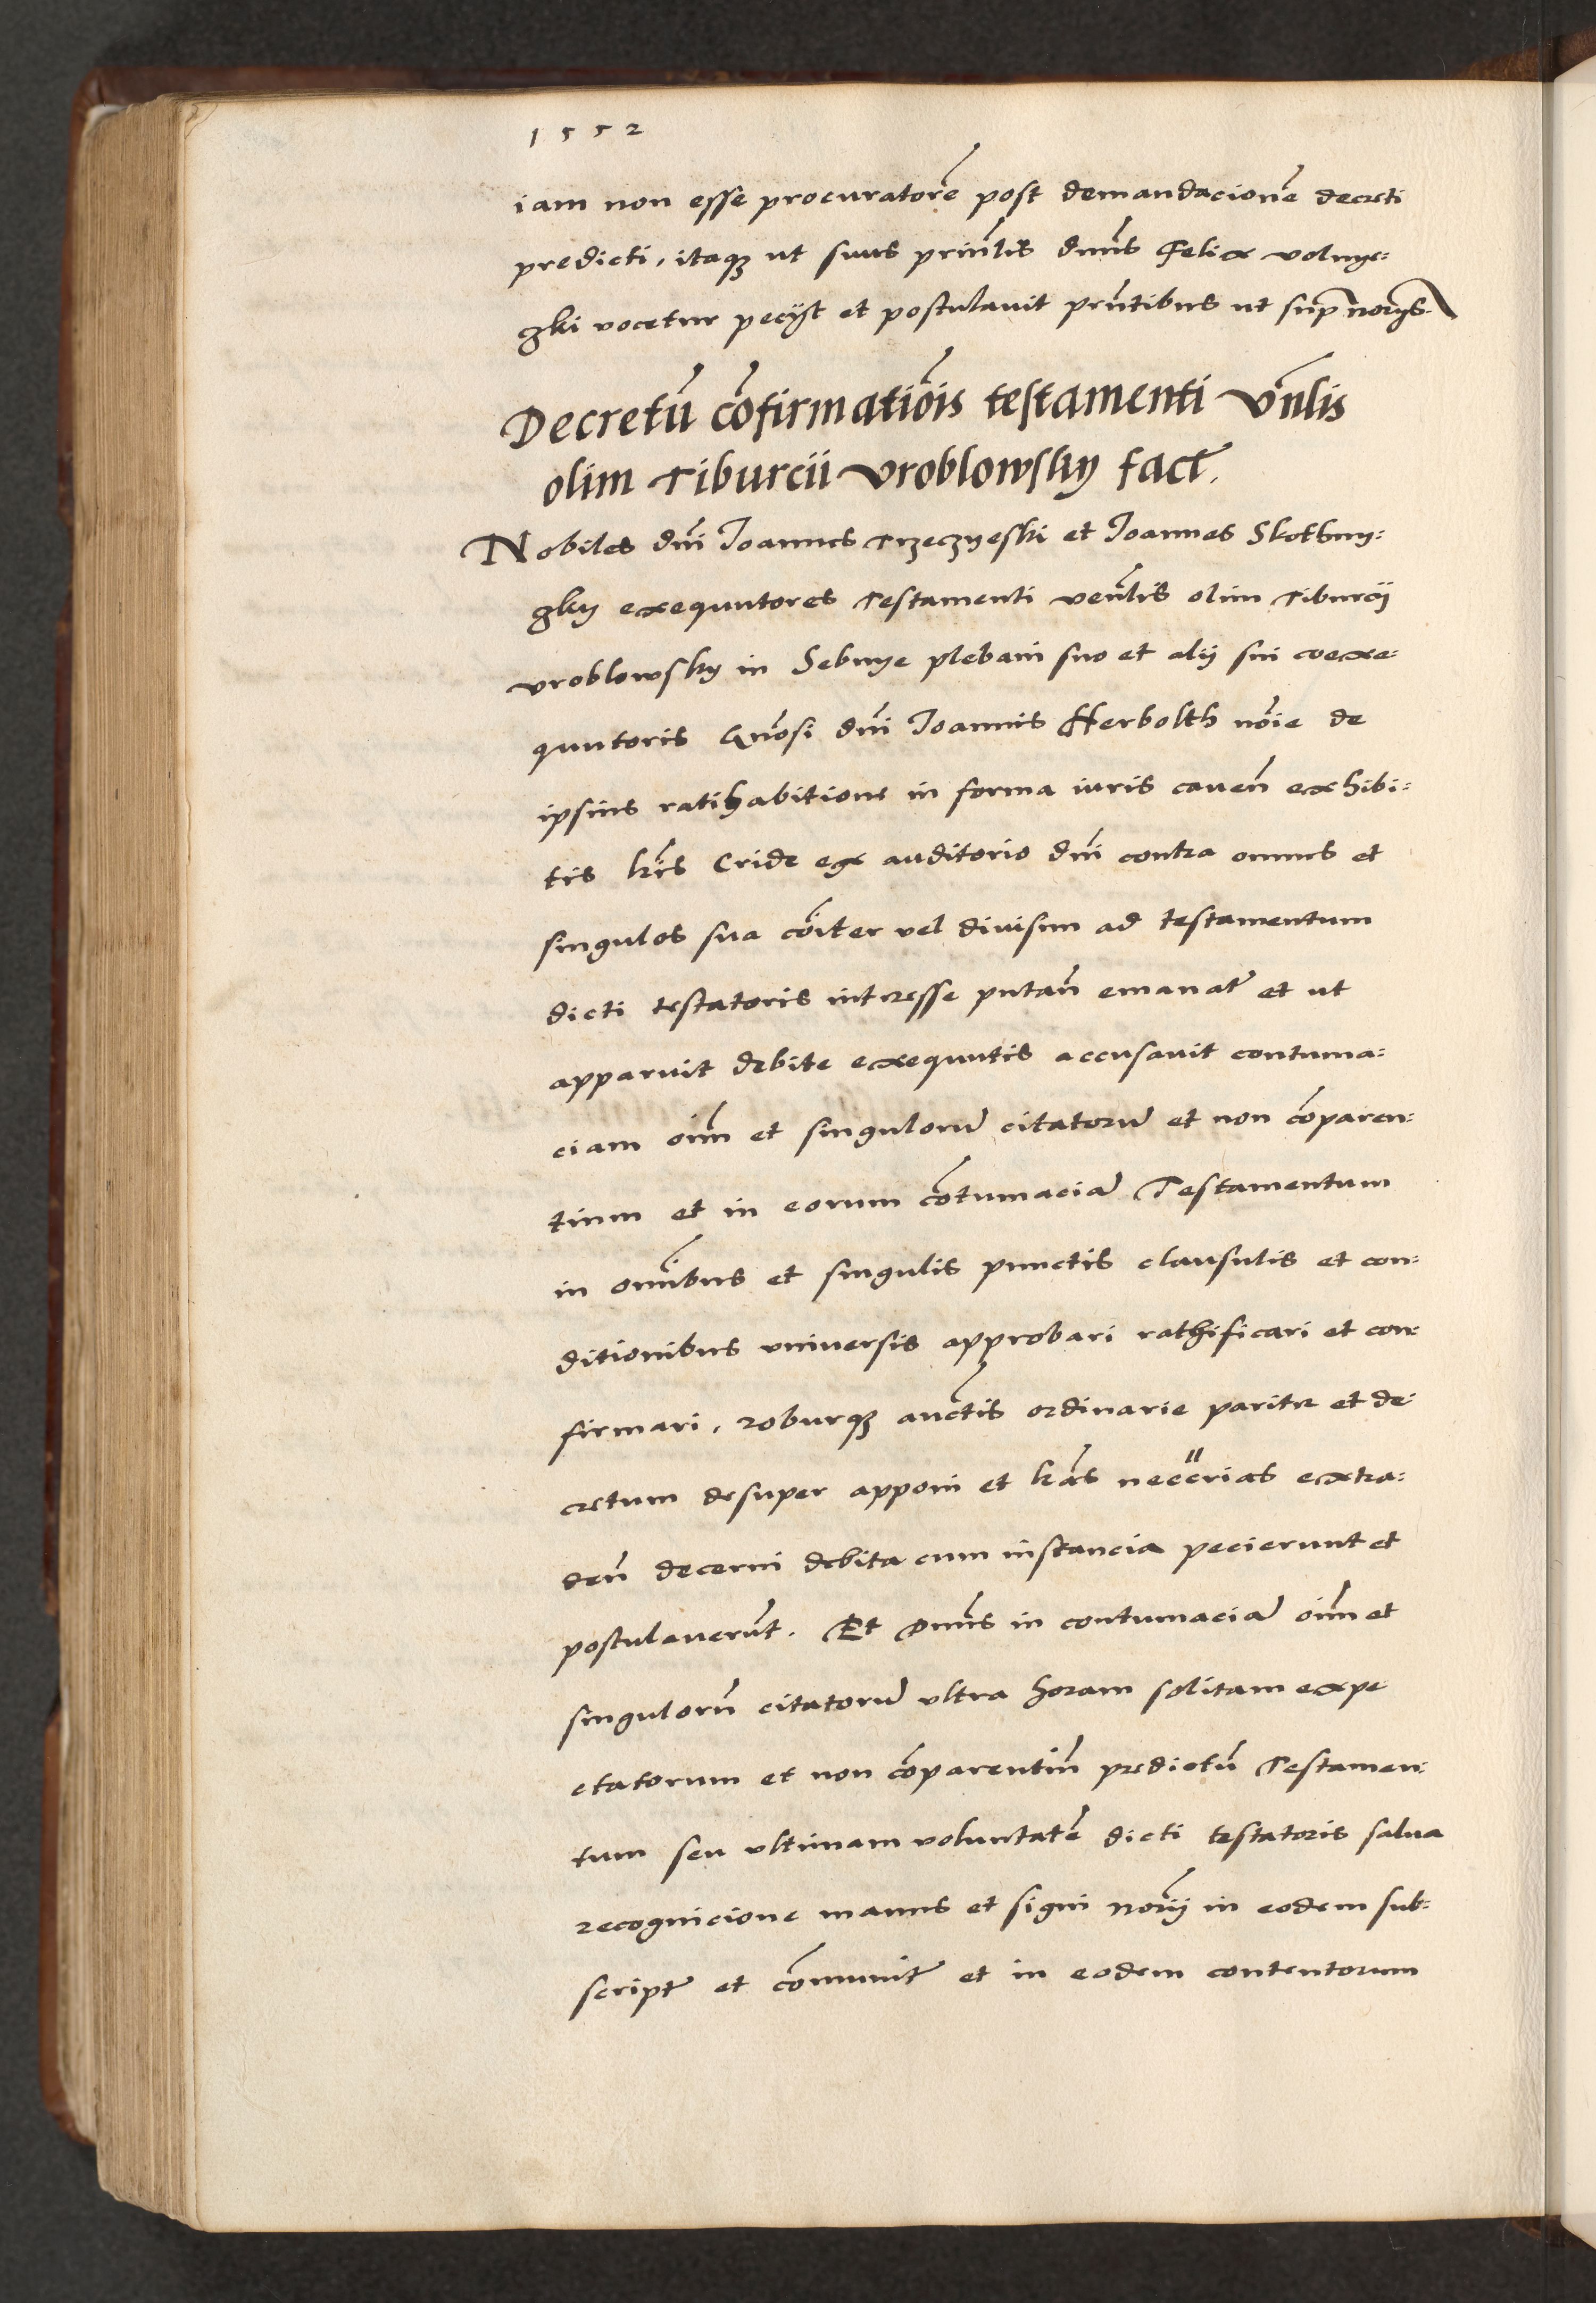 1552
iam non esse procuratorē post demandacionē decreti
predicti, itaqȝ ut suus prin̄lis dnūs Felix volnye:
gki vocetur pecijt et postulavit prn̄tibus ut supͣ norijs
Decretū cōfirmatiōis testamenti vn̄lis
olim Tiburcii vroblowsky fact̄.
Nobiles dn̄i Joannes Trzeczyeski et Joannes Skothny:
gky exequutores Testamenti ven̄lis olim Tiburcij
vroblowsky in Sebnye plebani suo et alij sui coexe:
quutoris Gn̄osi dn̄i Joannis Herbolth nōie de
ipsius ratihabitione in forma iuris caven̄ exhibi:
tis lr̄is Cride ex auditorio dn̄i contra omnes et
singulos sua cōiter vel divisim ad testamentum
dicti testatoris interesse putan̄ emanat̄ et ut
apparuit debite exequutis accusavit contuma:
ciam oīm et singulorū citatorū et non cōparen:
tium et in eorum cōtumaciā Testamentum
in omībus et singulis punctis clausulis et con:
ditionibus universis approbari rathificari et con:
firmari, roburqȝ auctīs ordinarie pariter et de:
cretum desuper apponi et lr̄as neccrias extra:
den̄ decerni debita cum instancia pecierunt et
postulaverūt. Et Dnūs in contumaciā oīm et
singulorū citatorū ultra horam solitam expe
ctatorum et non cōparentiū predictū Testamen:
tum seu ultimam voluntatē dicti testatoris salva
recognicione manus et signi norij in eodem sub:
script̄ et cōmunit̄ et in eodem contentorum